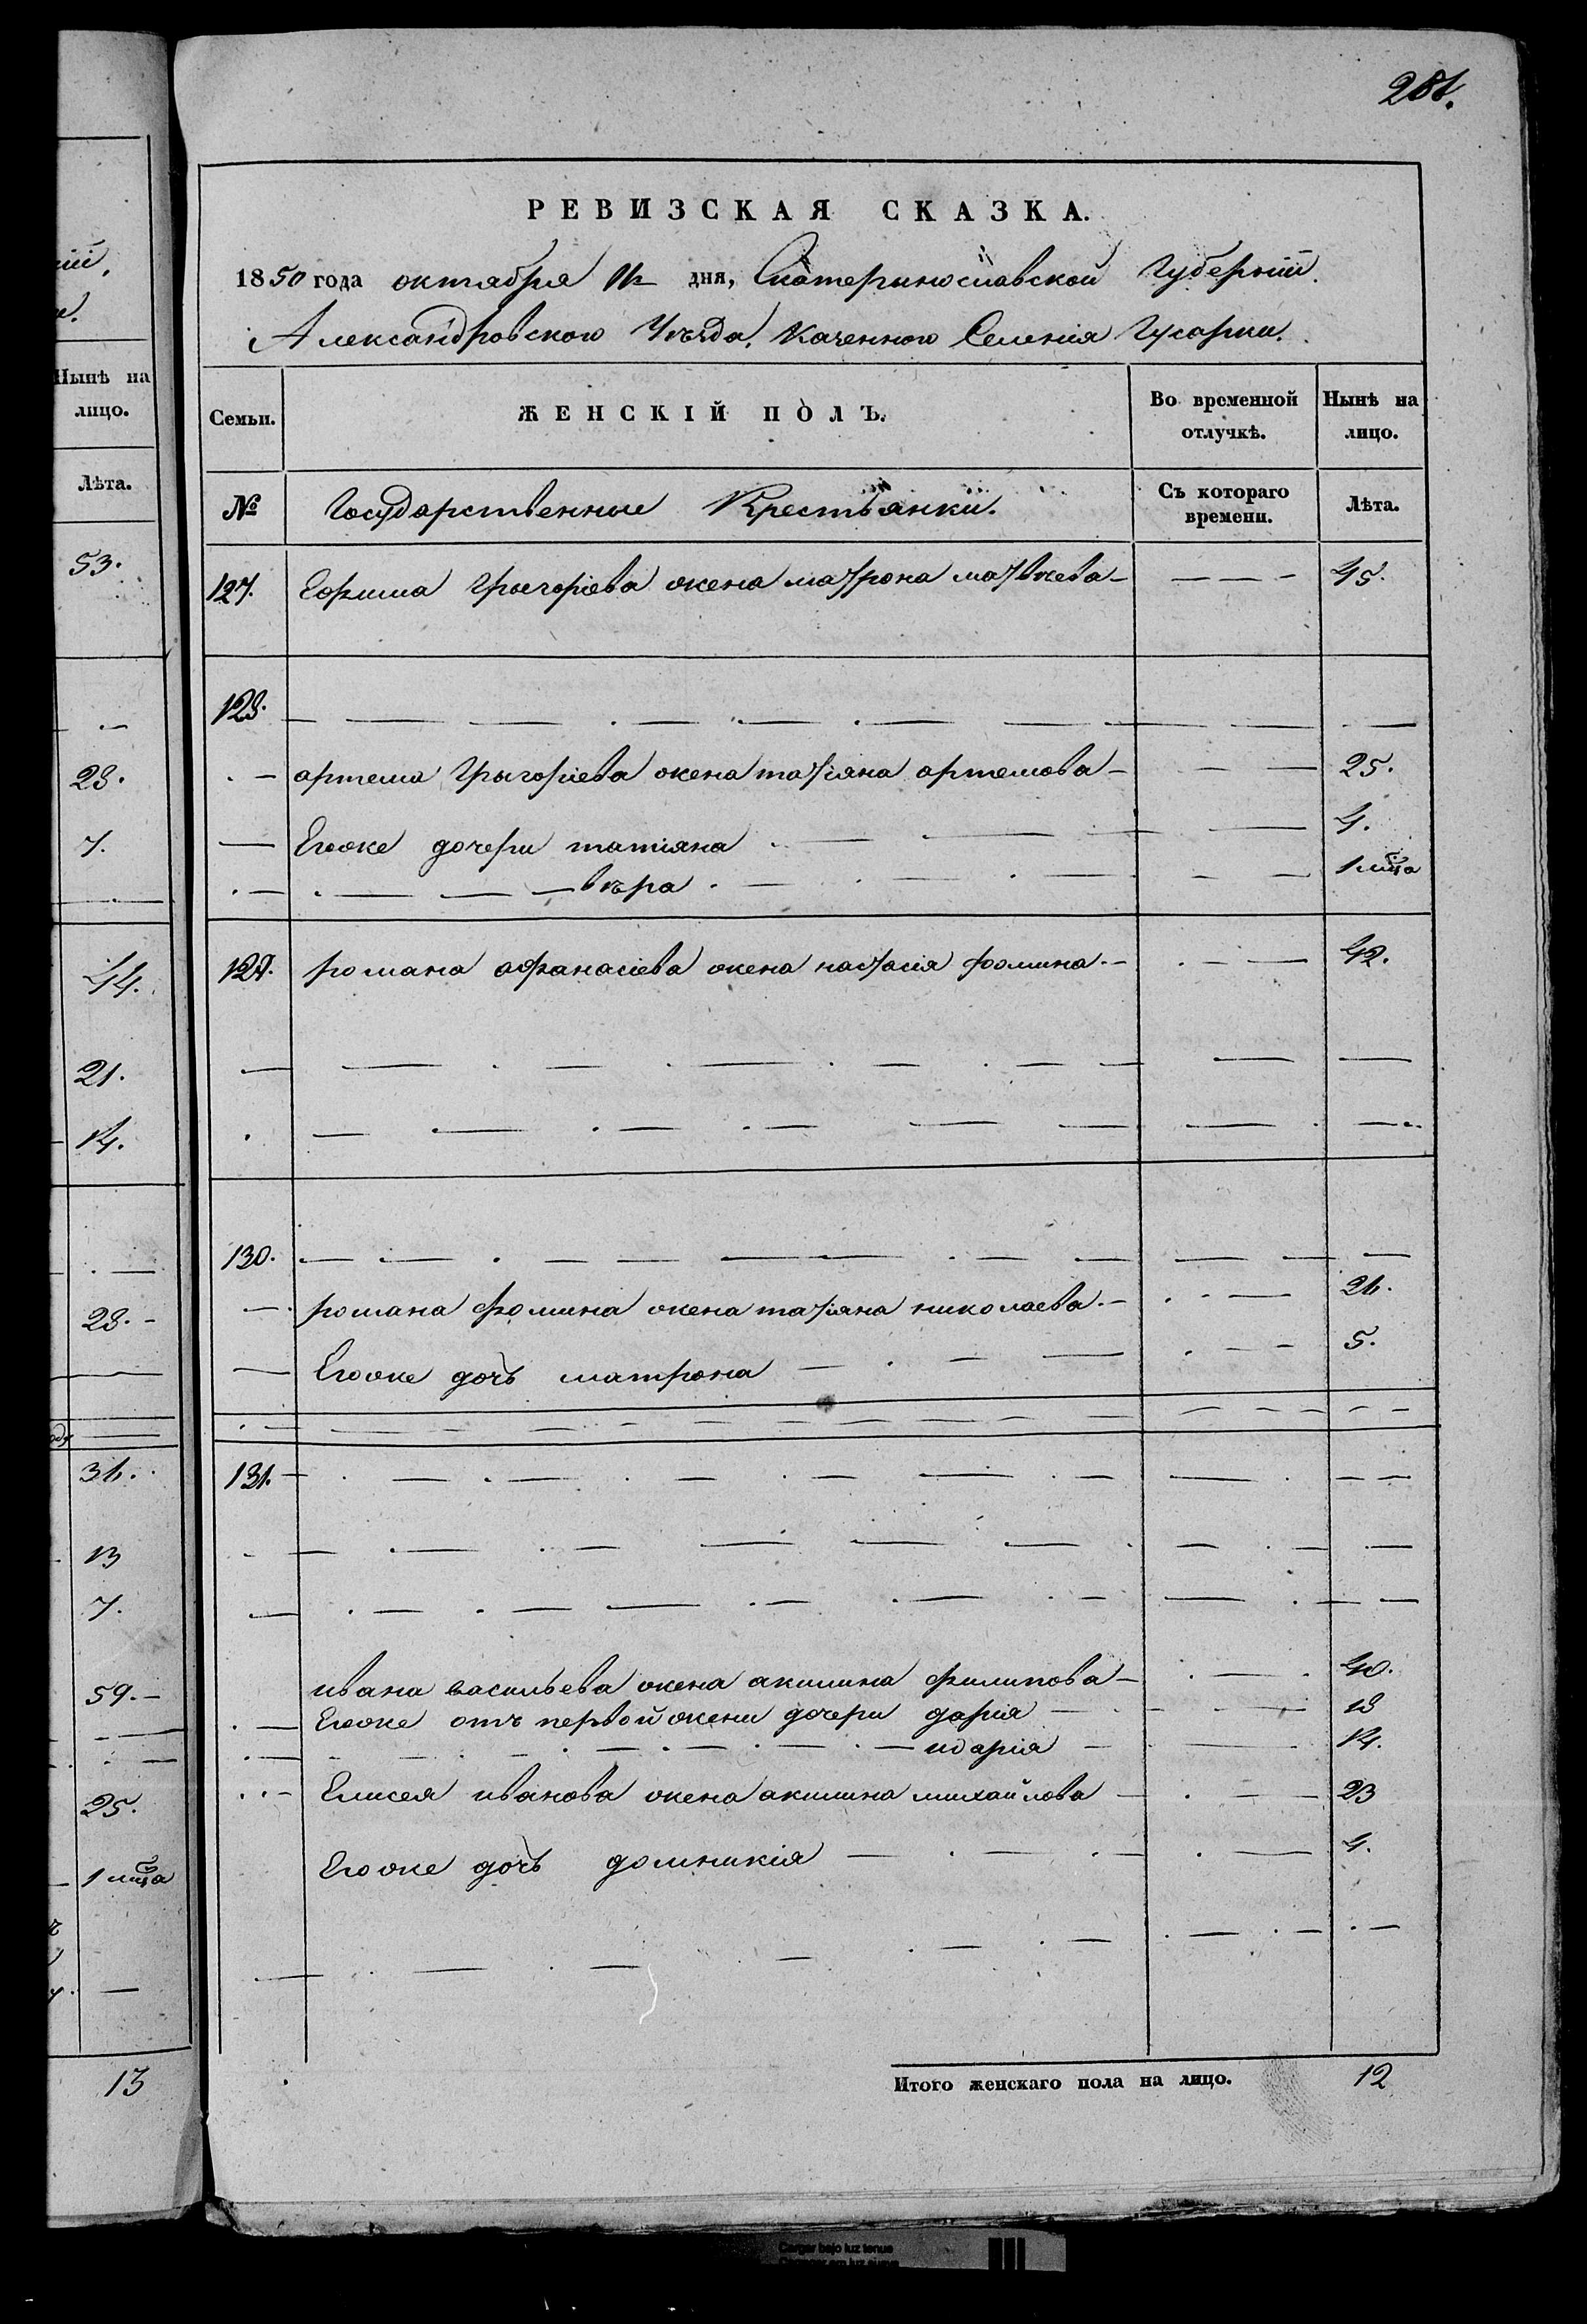 281.
РЕВИЗСКАЯ СКАЗКА.
1850 года октября дня, Екатеринославской Губерніи.
Александровского Уѣзда, Казенного Селенія Гусарки.
Семьи.
ЖЕНСКІЙ ПОЛЪ.
Во временной отлучкѣ.
Нынѣ на лицо.
№
Государственные Крестьянки.
Съ котораго времени.
Лѣта.
127. Ефима Григоріева жена матрона матвѣева — 45.
128.
артема Григоріева жена татіяна артемова — 25.
Егоже дочери татіяна 4.
вѣра 1 мѣца
129. романа афанасіева жена настасія фомина — 42.
130.
романа фомина жена татіяна николаева — 26.
Егоже дочь матрона — 5.
131.
ивана васильева жена акилина филипова — 40.
Егоже отъ первой жены дочери дарія — 18
идарія — 14.
Елисея иванова жена акилина михайлова — 23
Егоже дочь домникія — 4.
Итого женскаго пола на лицо. 12
Нынѣ на
лицо.
Лѣта.
53.
28.
7.
44.
21.
14.
28.
36.
13
7.
59.
25.
1 мѣца
13
Cargar bajo luz tenue